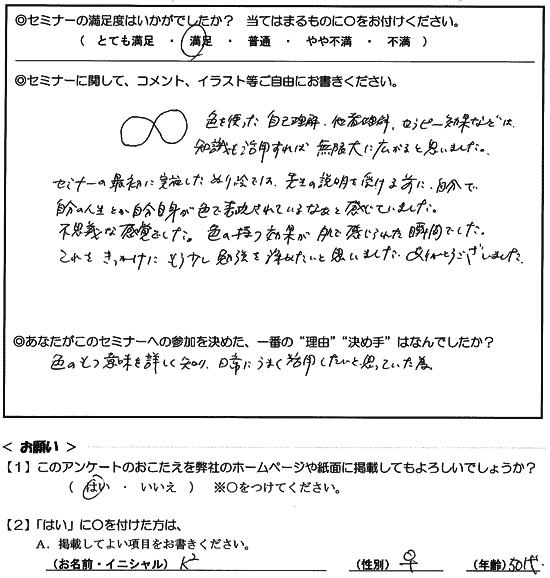 ◎セミナーの満足度はいかがでしたか？ 当てはまるものに○をお付けください。
（ とても満足 ・ 満足 ・ 普通 ・ やや不満 ・ 不満 ）
◎セミナーに関して、コメント、イラスト等ご自由にお書きください。
色を使った 自己理解、他者理解、セラピー効果などは、
知識も活用すれば 無限大に広がると思いました。
セミナーの最初に実施した ぬり絵では、先生の説明を受ける前に、自分で
自分の人生とか自分自身が色で表現されているなぁと感じていました。
不思議な感覚でした。色の持つ効果が 肌で感じられた瞬間でした。
これをきっかけに もう少し勉強を深めたいと思いました。ありがとうございました。
◎あなたがこのセミナーへの参加を決めた、一番の“理由”“決め手”はなんでしたか？
色のもつ意味を詳しく知り、日常にうまく活用したいと思っていた為
＜ お願い ＞
【１】このアンケートのおこたえを弊社のホームページや紙面に掲載してもよろしいでしょうか？
（ はい ・ いいえ ） ※○をつけてください。
【２】「はい」に○を付けた方は、
A. 掲載してよい項目をお書きください。
（お名前・イニシャル） K² （性別） 女 （年齢） 50代